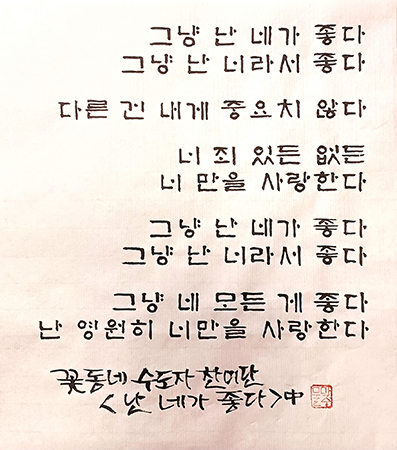 그냥 난 네가 좋다
그냥 난 너라서 좋다
다른 건 내게 중요치 않다
너 죄 있든 없든
너 만을 사랑한다
그냥 난 네가 좋다
그냥 난 너라서 좋다
그냥 네 모든 게 좋다
난 영원히 너만을 사랑한다
꽃동네 수도자 찬미단
<난 네가 좋다>中